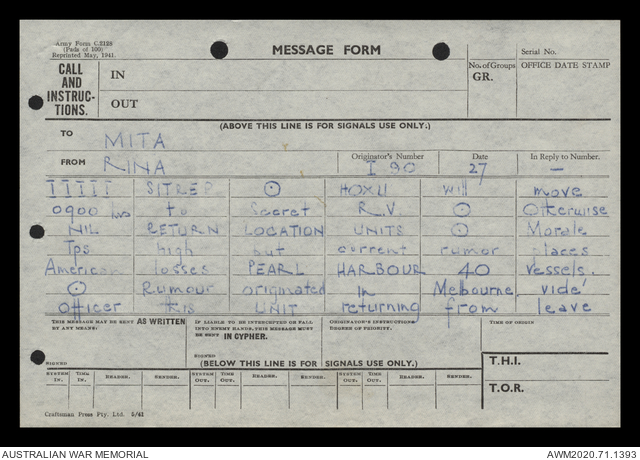 Army Form C.2128
(Pads of 100)
Reprinted May, 1941.
MESSAGE FORM
Serial No.
CALL AND INSTRUC- TIONS.
IN
OUT
No. of Groups GR.
OFFICE DATE STAMP
(ABOVE THIS LINE IS FOR SIGNALS USE ONLY.)
TO MITA
FROM RINA
Originator's Number I 90
Date 27
In Reply to Number. —
IIIII SITREP ⊙ HOXU will move
0900 hrs to Secret R.V. ⊙ Otherwise
NIL RETURN LOCATION UNITS ⊙ Morale
Tps high but current rumor places
American losses PEARL HARBOUR 40 vessels.
⊙ Rumour originated in Mebourne, vide'
officer this UNIT returning from leave
THIS MESSAGE MAY BE SENT AS WRITTEN BY ANY MEANS.
IF LIABLE TO BE INTERCEPTED OR FALL INTO ENEMY HANDS, THIS MESSAGE MUST BE SENT IN CYPHER.
ORIGINATOR'S INSTRUCTIONS DEGREE OF PRIORITY.
TIME OF ORIGIN
SIGNED
SIGNED
(BELOW THIS LINE IS FOR SIGNALS USE ONLY.)
T.H.I.
T.O.R.
SYSTEM IN. TIME IN. READER. SENDER. SYSTEM OUT. TIME OUT. READER. SENDER. SYSTEM OUT. TIME OUT. READER. SENDER.
Craftsman Press Pty. Ltd. 5/41
AUSTRALIAN WAR MEMORIAL
AWM2020.71.1393